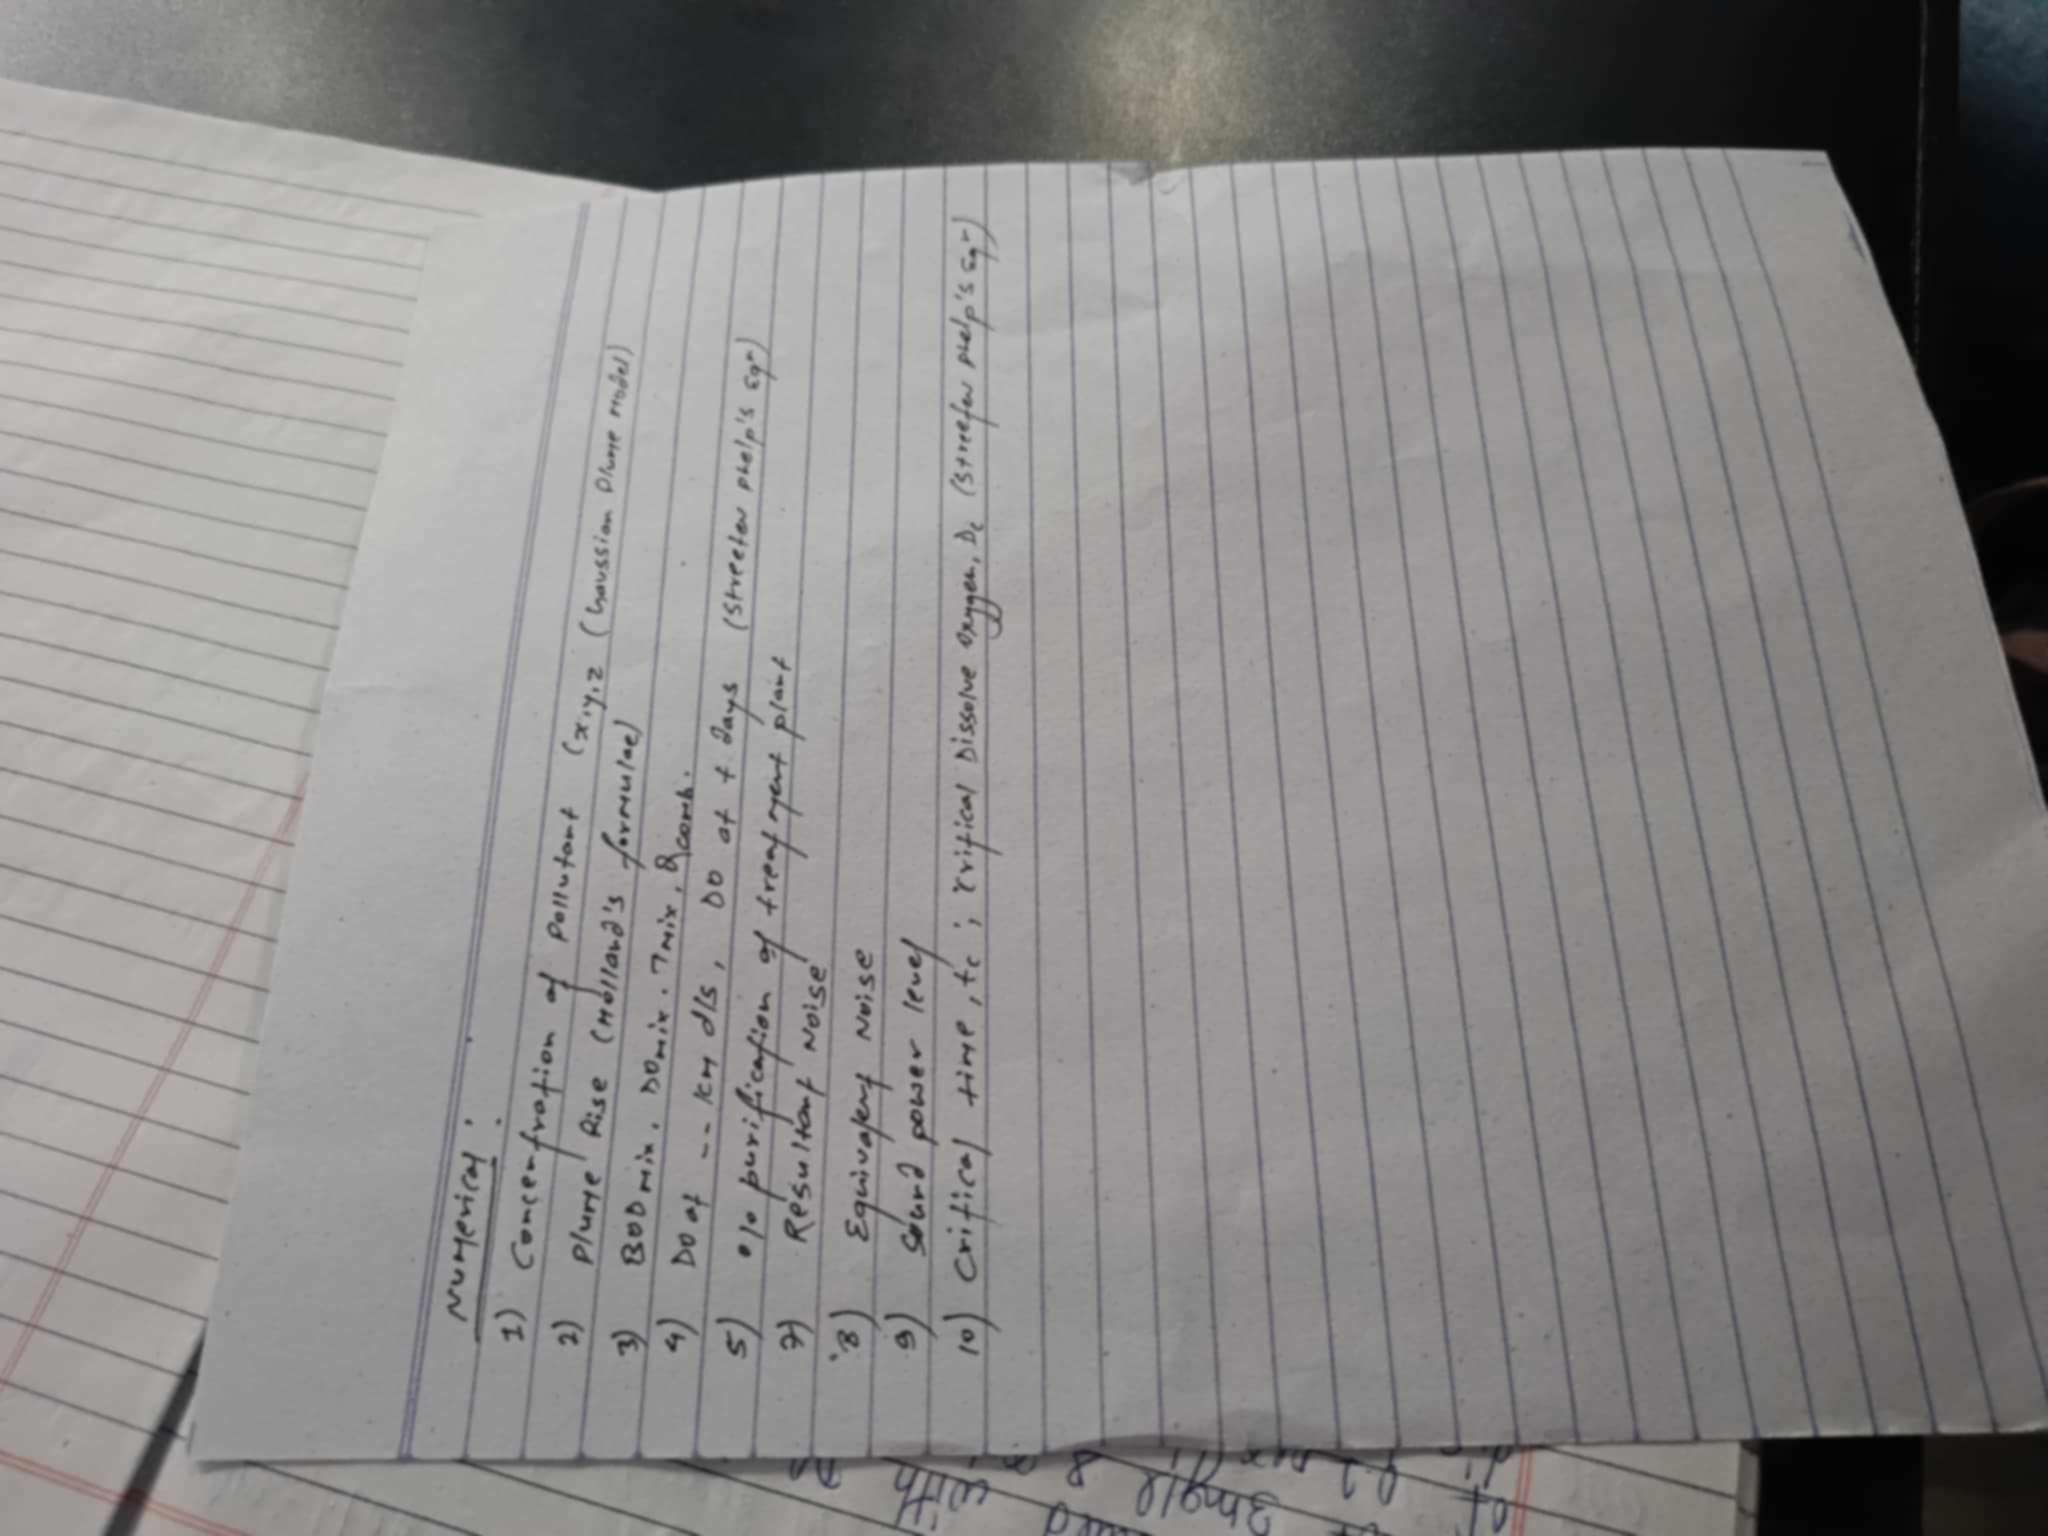 Numerical :
1) Concentration of pollutant (x,y,z (Gaussian Plume Model)
2) Plume Rise (Holland's formulae)
3) BODmix, DOmix, Tmix, Qcomb.
4) DO at -- km d/s, DO at t days (Streeter phelp's Eqn)
5) % purification of treatment plant
7) Resultant Noise
8) Equivalent Noise
9) Sound power level
10) Critical time, tc ; critical Dissolve oxygen, Dc (Streeter phelp's Eqn)
of
angle 8
with